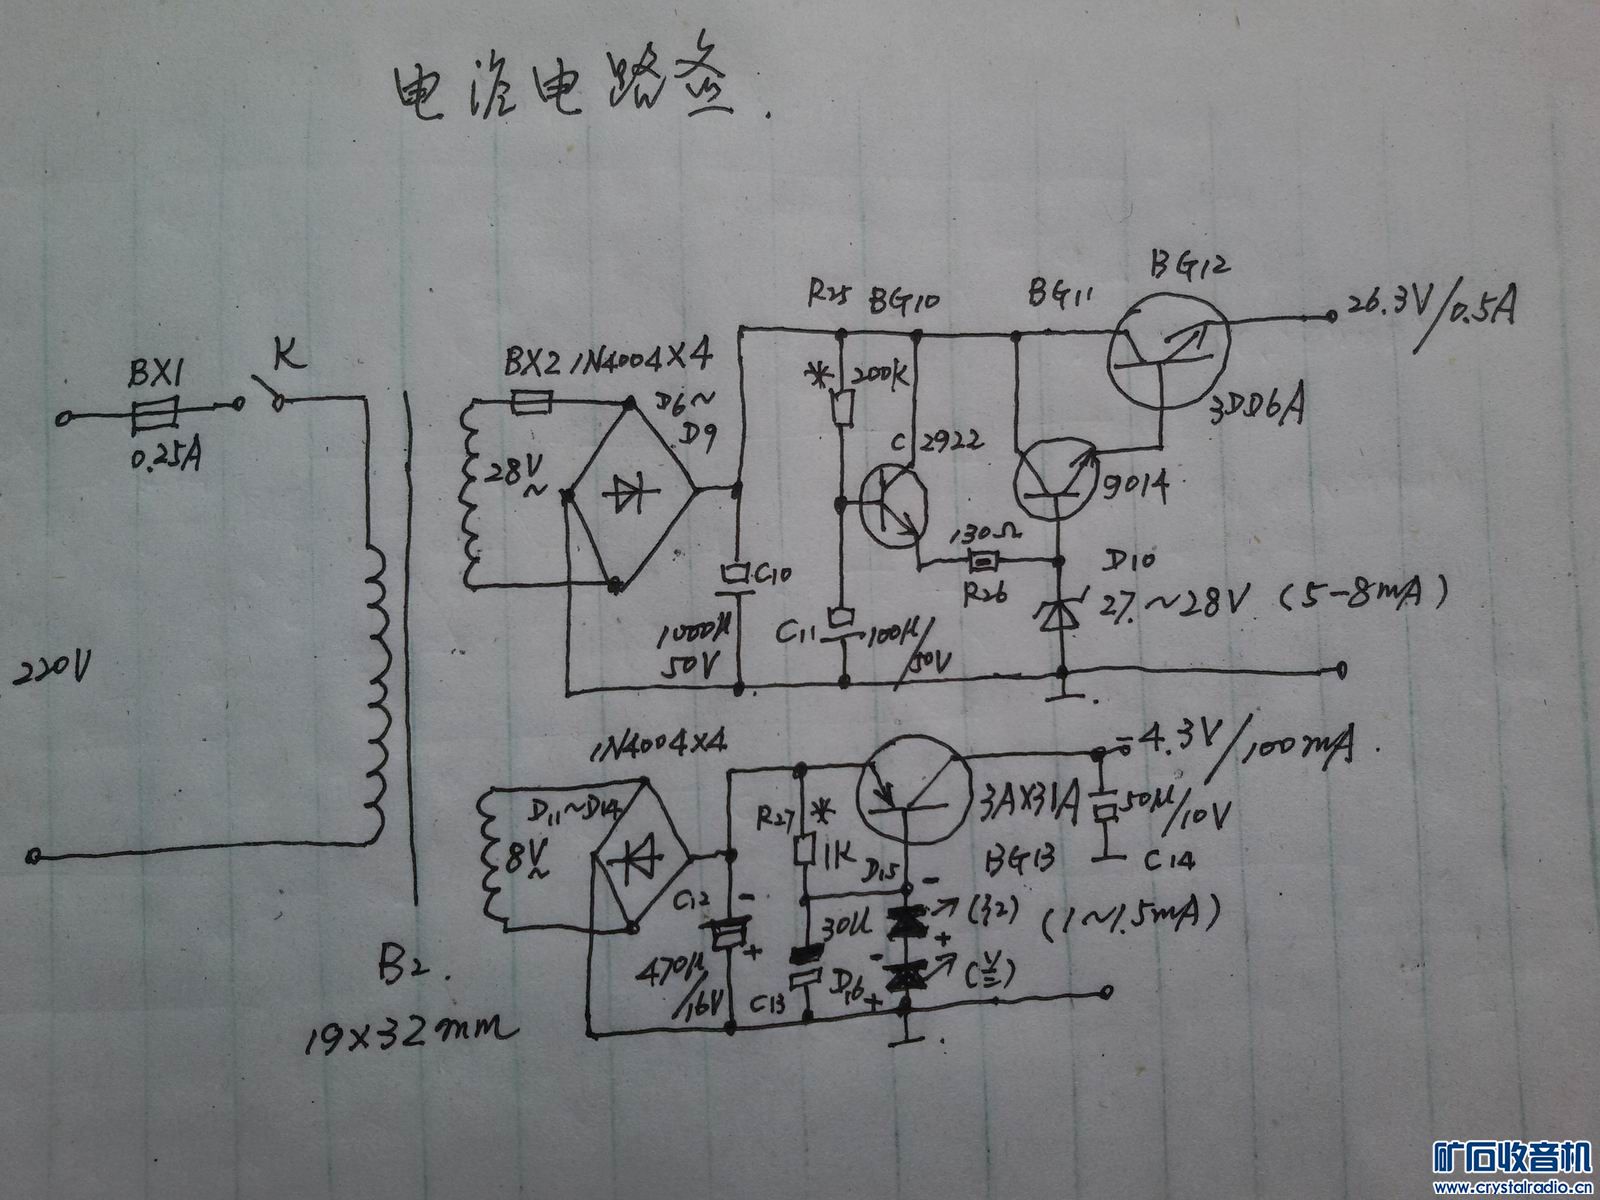 电源电路图.
BX1
K
0.25A
220V
B2.
19×32mm
BX2 1N4004×4
D6~
D9
28V~
C10
1000μ
50V
R25
*
200K
BG10
C2922
BG11
9014
BG12
3DD6A
26.3V/0.5A
130Ω
R26
D10
27.~28V (5-8mA)
C11
100μ/
50V
1N4004×4
D11~D14
8V~
C12
-
+
470μ
/16V
R27
*
1K
30μ
C13
3AX31A
BG13
-4.3V/100mA.
50μ
/10V
C14
D15
-
+
(1~1.5mA)
D16
-
+
矿石收音机
www.crystalradio.cn